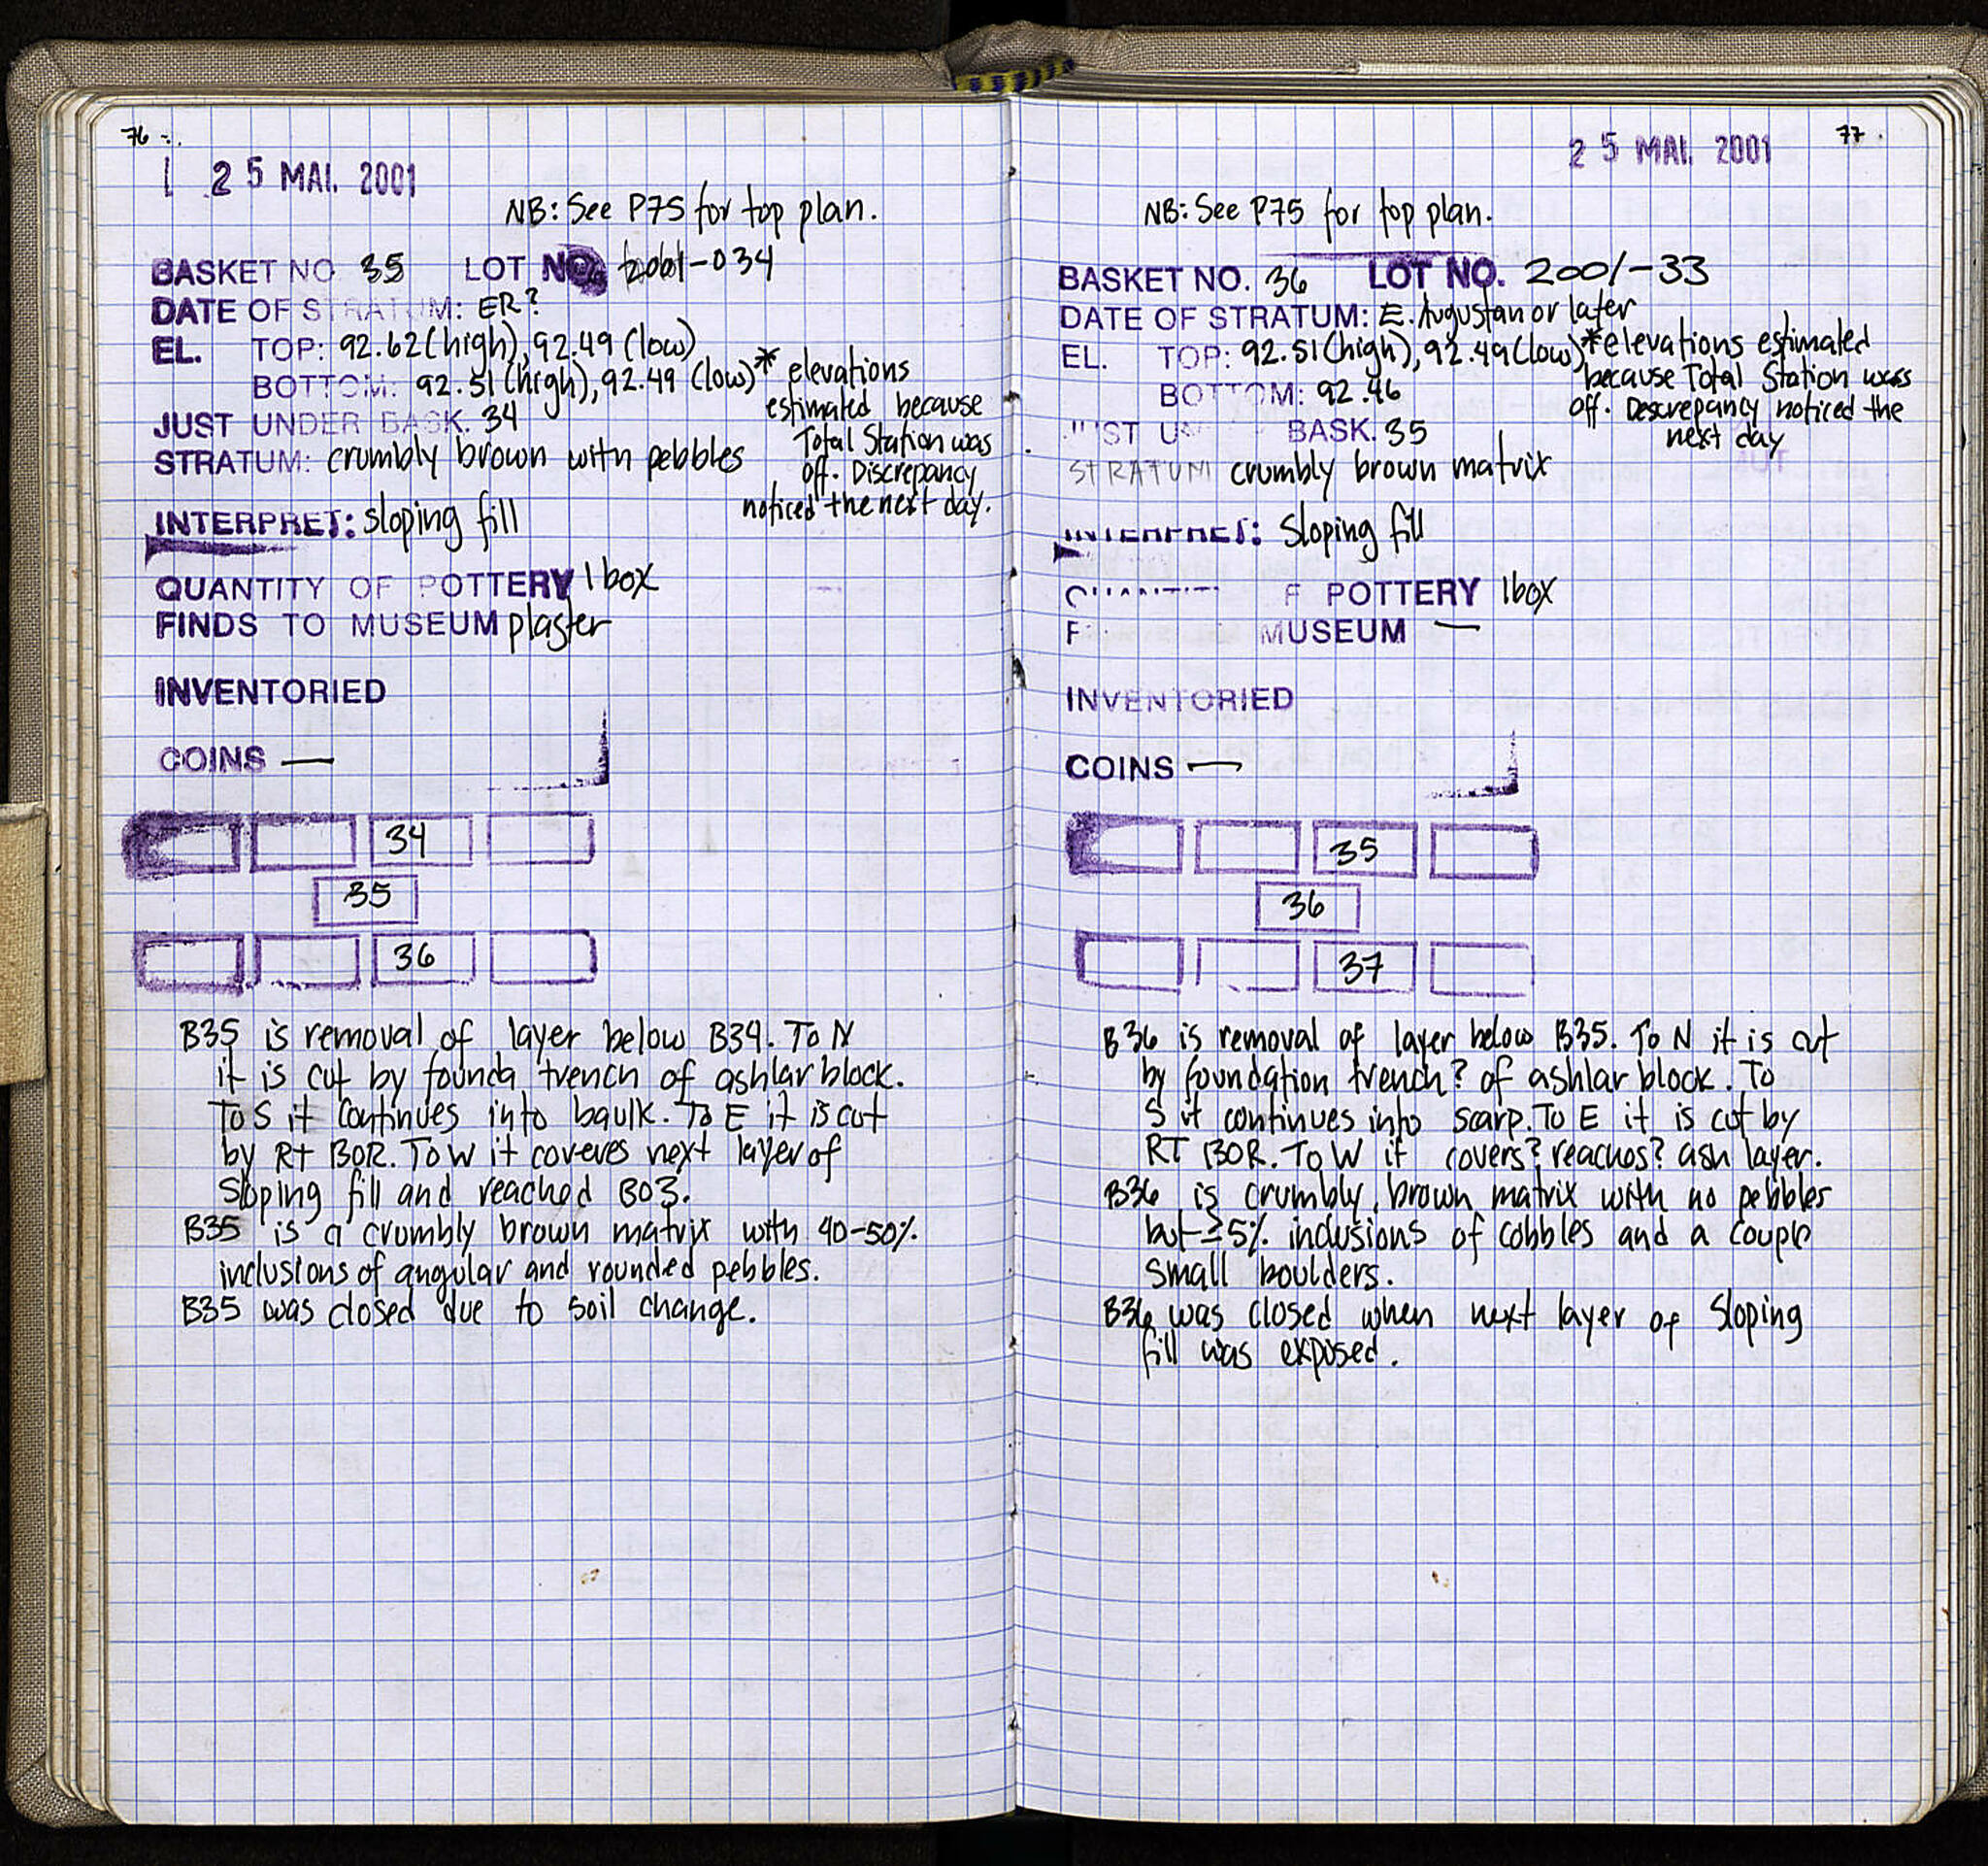 76
25 MAI. 2001
NB: See P75 for top plan.
BASKET NO 35 LOT NO. 2001-034
DATE OF STRATUM: ER?
EL. TOP: 92.62 (high), 92.49 (low)
BOTTOM: 92.51 (high), 92.49 (low)* elevations
estimated because
Total Station was
off. Discrepancy
noticed the next day.
JUST UNDER BASK. 34
STRATUM: crumbly brown with pebbles
INTERPRET: sloping fill
QUANTITY OF POTTERY 1 box
FINDS TO MUSEUM plaster
INVENTORIED
COINS —
34
35
36
B35 is removal of layer below B34. To N
it is cut by founda trench of ashlar block.
To S it continues into baulk. To E it is cut
by Rt BOR. To W it coveres next layer of
sloping fill and reached B03.
B35 is a crumbly brown matrix with 40-50%
inclusions of angular and rounded pebbles.
B35 was closed due to soil change.
77
25 MAI. 2001
NB: See P75 for top plan.
BASKET NO. 36 LOT NO. 2001-33
DATE OF STRATUM: E. Augustan or later
EL. TOP: 92.51 (high), 92.49 (low)* elevations estimated
because Total Station was
off. Descrepancy noticed the
next day
BOTTOM: 92.46
JUST U BASK. 35
STRATUM crumbly brown matrix
INTERPRET: Sloping fill
QUANTITY F POTTERY 1 box
F MUSEUM —
INVENTORIED
COINS —
35
36
37
B36 is removal of layer below B35. To N it is cut
by foundation trench? of ashlar block. To
S it continues into scarp. To E it is cut by
RT BOR. To W it covers? reaches? ash layer.
B36 is crumbly, brown matrix with no pebbles
but ≤5% inclusions of cobbles and a couple
small boulders.
B36 was closed when next layer of sloping
fill was exposed.